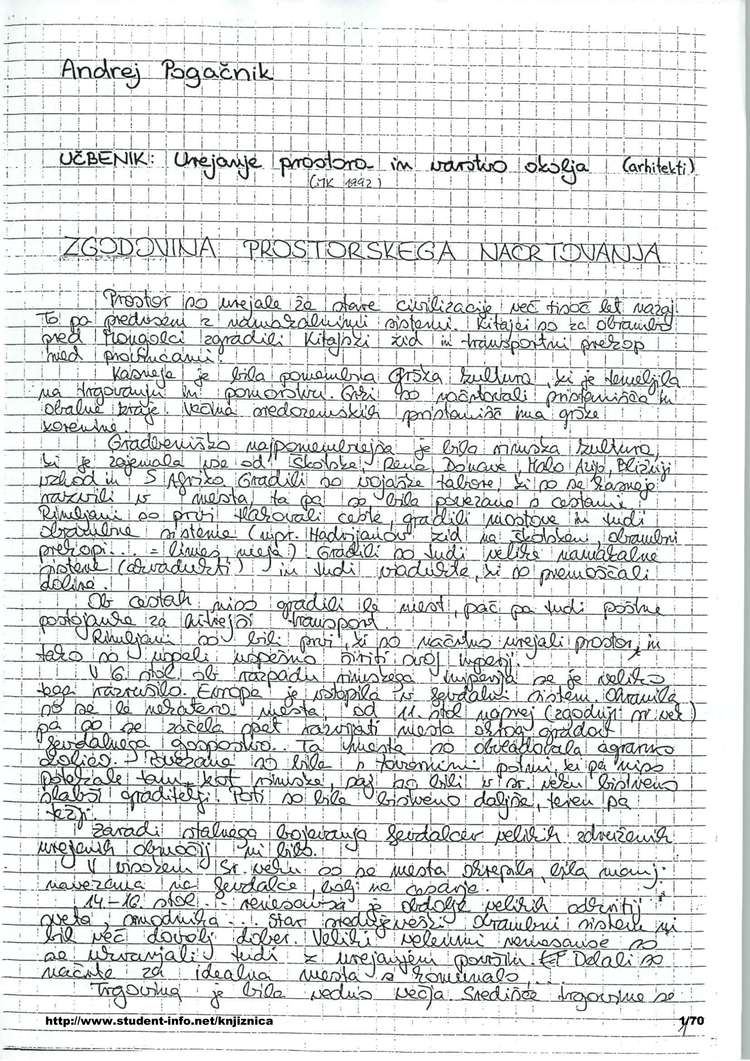 Andrej Pogačnik
UČBENIK: Urejanje prostora in varstvo okolja (arhitekti)
(MK 1992)
ZGODOVINA PROSTORSKEGA NAČRTOVANJA
Prostor so urejale že stare civilizacije več tisoč let nazaj.
To pa predvsem z namakalnimi sistemi. Kitajci so za obrambo
pred Mongolci zgradili Kitajski zid in transportni prekop
med provincami.
Kasneje je bila pomembna grška kultura, ki je temeljila
na trgovanju in pomorstvu. Grki so načrtovali pristanišča in
obalne kraje. Večina sredozemskih pristanišč ima grške
korenine.
Gradbeniško najpomembnejša je bila rimska kultura,
ki je zajemala vse od Škotske, Rena, Donave, Malo Azijo, Bližnji
vzhod in S Afriko. Gradili so vojaške tabore, ki so se kasneje
razvili v mesta, ta pa so bila povezana s cestami.
Rimljani so prvi tlakovali ceste, gradili mostove in tudi
obrambne sisteme (npr. Hadrijanov zid na Škotskem, obrambni
prekopi... = limes meja) Gradili so tudi velike namakalne
sisteme (akvadukti) in tudi viadukte, ki so premoščali
doline.
Ob cestah niso gradili le mest, pač pa tudi poštne
postojanke za hitrejši transport.
Rimljani so bili prvi, ki so načrtno urejali prostor, in
tako so uspeli uspešno širiti svoj imperij.
V 6. stol. ob razpadu rimskega imperija se je veliko
tega razrušilo. Evropa je vstopila v fevdalni sistem. Ohranila
so se le nekatera mesta, od 11. stol naprej (zgodnji sr. vek)
pa so se začela spet razvijati mesta okrog gradov
fevdalnega gospostva. Ta mesta so obvladovala agrarno
okolico. Povezana so bila s tovornimi potmi, ki pa niso
potekale tam, kot rimske, saj so bili v sr. veku bistveno
slabši graditelji. Poti so bile bistveno daljše, teren pa
težji.
Zaradi stalnega bojevanja fevdalcev velikih združenih
urejenih območij ni bilo.
V visokem sr. veku so se mesta okrepila, bila manj
navezana na fevdalce, bolj na cesarje.
14-16 stol. ... renesansa je obdobje velikih odkritij
sveta, smodnika ... Star srednjeveški obrambni sistem ni
bil več dovolj dober. Veliki umi renesanse so
se ukvarjali tudi z urejanjem površin. Delali so
načrte za idealna mesta s
Trgovina je bila vedno večja. Središče trgovine se
http://www.student-info.net/knjiznica
1/70